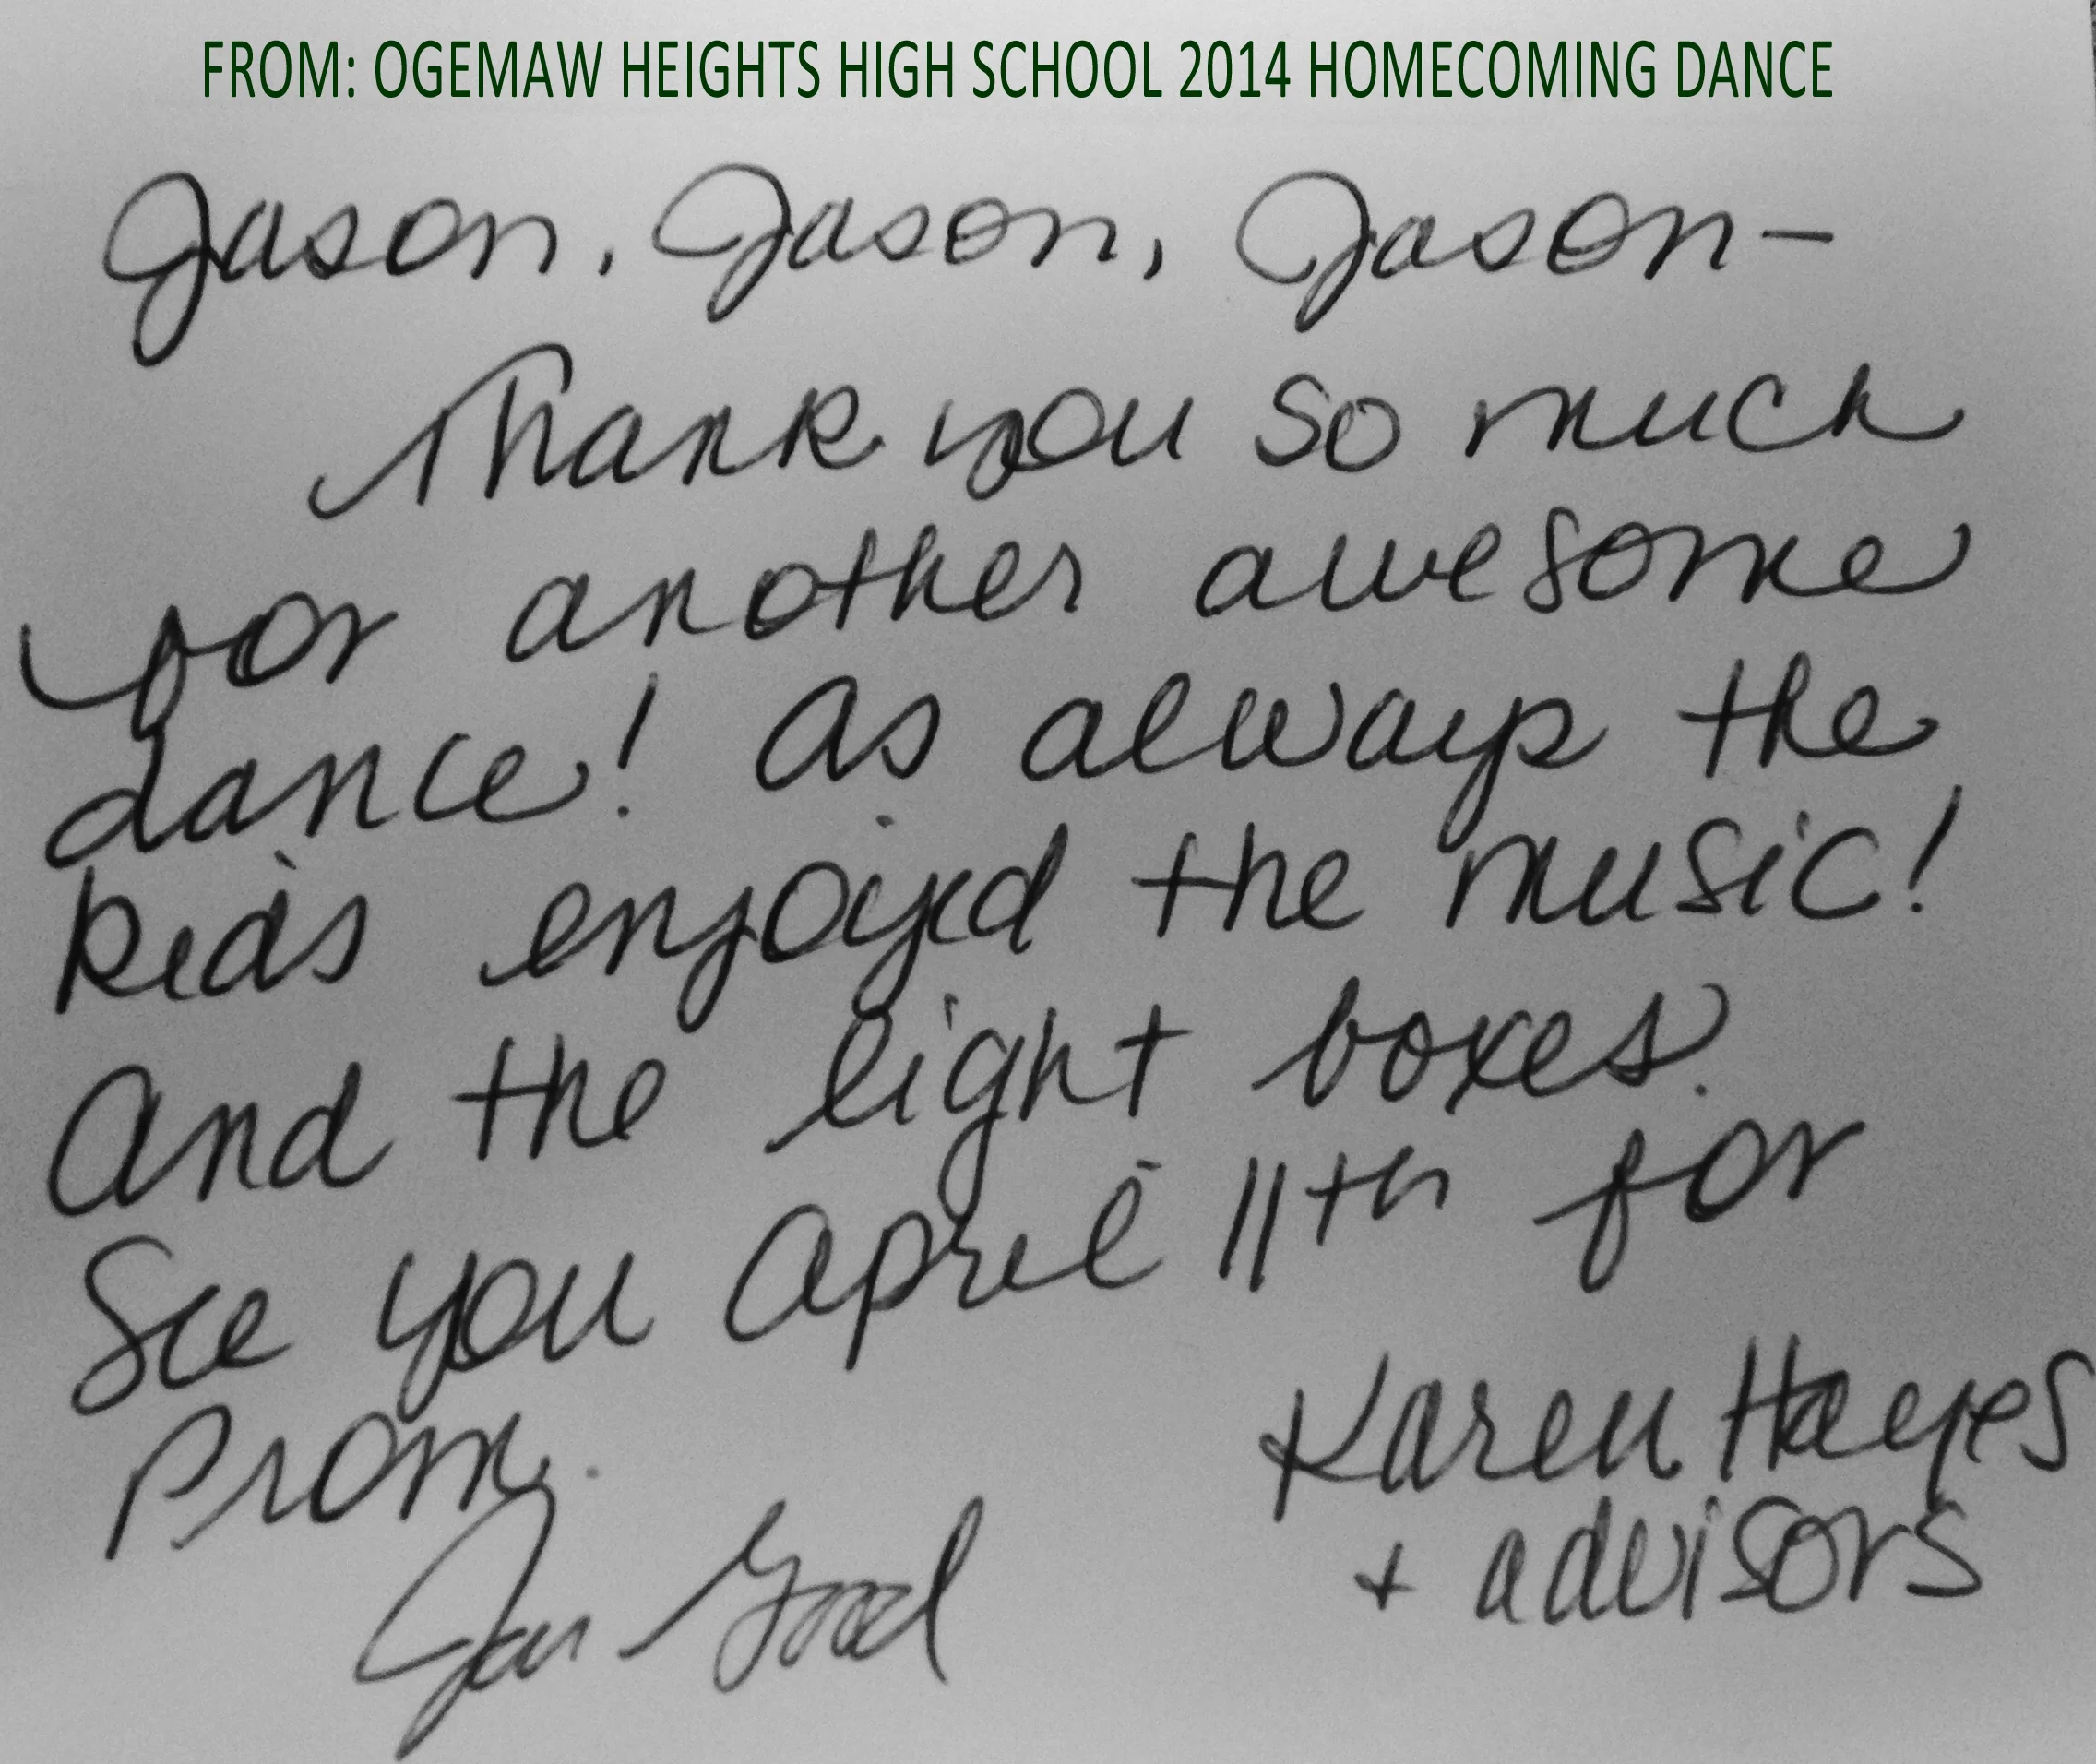 FROM: OGEMAW HEIGHTS HIGH SCHOOL 2014 HOMECOMING DANCE
Jason, Jason, Jason-
Thank you so much
for another awesome
dance! As always the
kids enjoyed the music!
And the light boxes.
See you April 11th for
Prom.
Karen Hayes
+ advisors
Jan Good